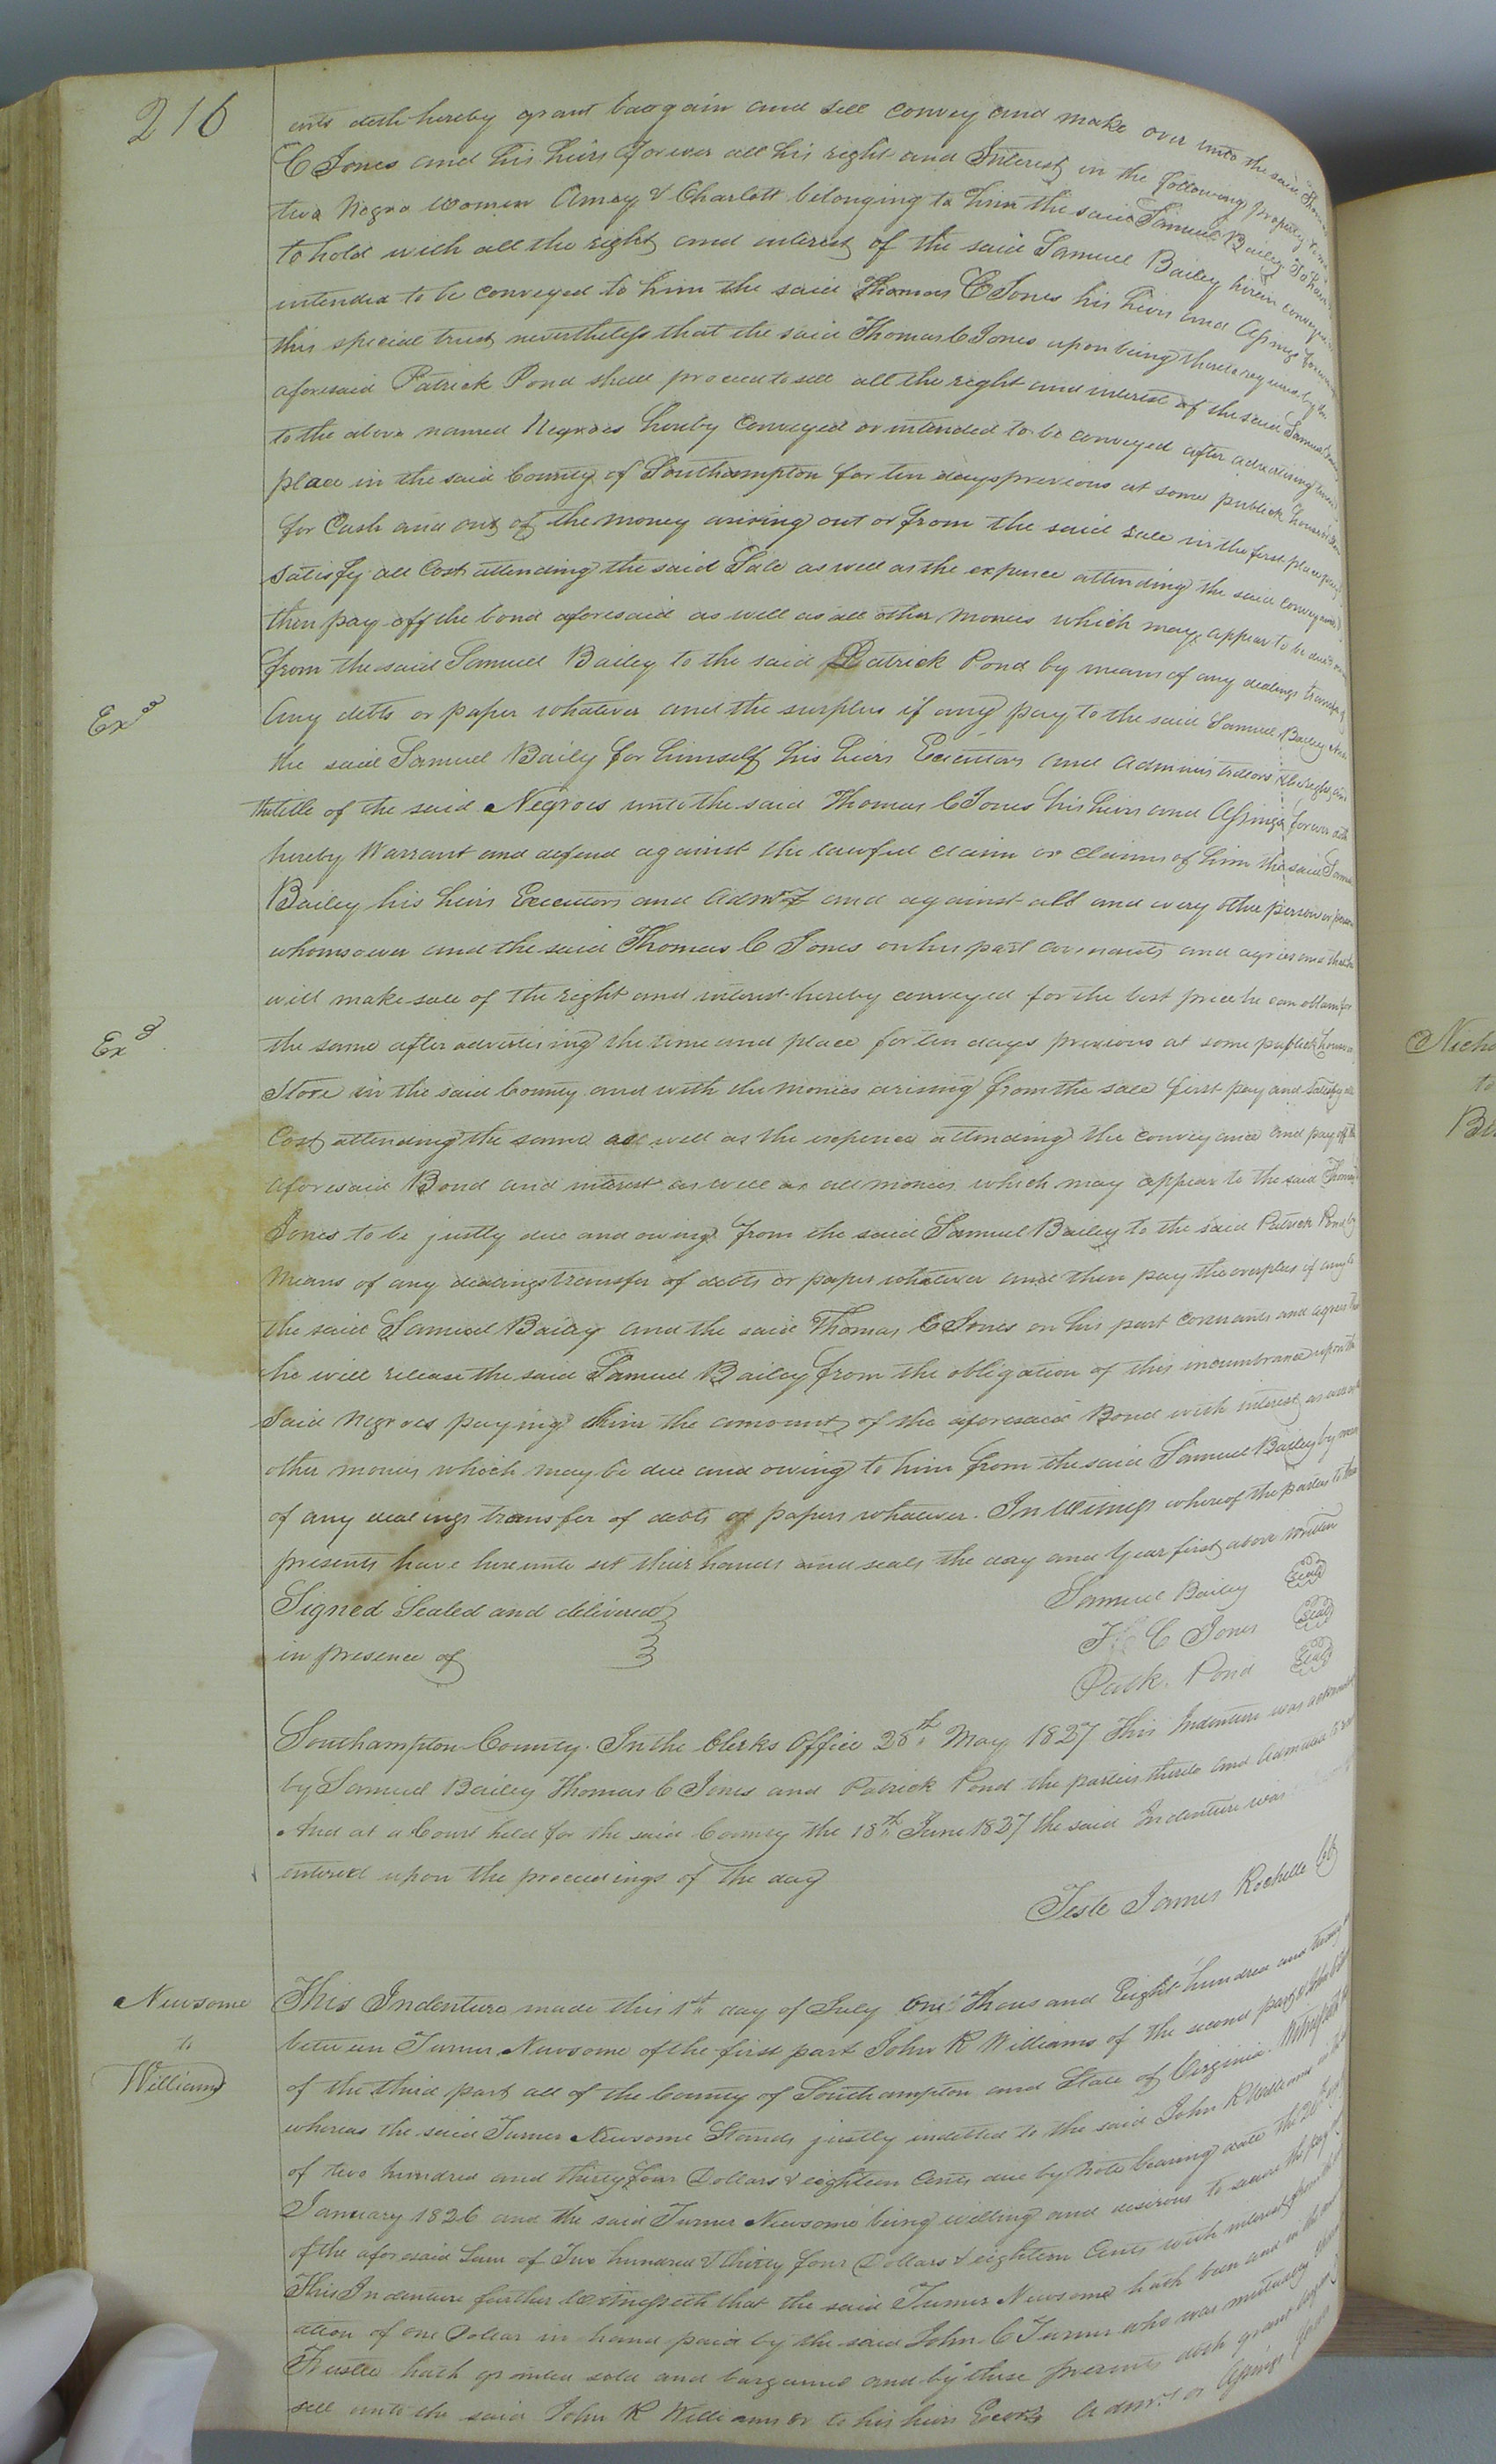 216
ents doth hereby grant bargain and sell convey and make over unto the said Thomas
C Jones and his heirs forever all his right and Interest in the following property to wit
two Negro Women Amey & Charlott belonging to him the said Samuel Bailey To have
to hold with all the right and interest of the said Samuel Bailey herein conveyed
intended to be conveyed to him the said Thomas C Jones his heirs and Assings forever
this special trust nevertheless that the said Thomas C Jones upon being thereto required by the
aforesaid Patrick Pond shall proceed to sell all the right and interest of the said Samuel Bailey
to the above named Negroes hereby Conveyed or intended to be conveyed after advertising
place in the said County of Southampton for ten days previous at some publick house
for Cash and out of the money arising out or from the said sale in the first place pay
Satisfy all Cost attending the said Sale as well as the expence attending the said conveyance
then pay off the bond aforesaid as well as all other Monies which may appear to be due
from the said Samuel Bailey to the said Patrick Pond by means of any dealings transfer of
Exd
any debts or paper whatever and the surplus if any pay to the said Samuel Bailey And
the said Samuel Baily for himself his heirs Executors and Administrators the right and
the title of the said Negroes unto the said Thomas C Jones his heirs and Assings forever doth
hereby Warrant and defend against the lawful claim or claims of him the said Samuel
Bailey his heirs Executors and Admrs and against all and every other person or persons
whomsoever and the said Thomas C Jones on his part covenants and agrees that he
will make sale of the right and interest hereby conveyed for the best price he can obtain for
Exd
the same after advertising the time and place for ten days previous at some publick house or
Store in the said County and with the monies arising from the sale first pay and satisfy all
Cost attending the same as well as the expence attending the conveyance and pay off the
aforesaid Bond and interest as well as all monies which may appear to the said Thomas C
Jones to be justly due and owing from the said Samuel Bailey to the said Patrick Pond by
Means of any dealings transfer of debts or paper whatever and then pay the overplus if any to
the said Samuel Bailey and the said Thomas C Jones on his part covenants and agrees that
he will release the said Samuel Bailey from the obligation of this incumbrance upon the
Said Negroes paying him the amount of the aforesaid Bond with interest as well as
other monies which may be due and owing to him from the said Samuel Bailey by means
of any dealings transfer of debts or papers whatever. In Witness whereof the parties to these
presents have hereunto set their hands and seals the day and Year first above written
Signed Sealed and delivered
in presence of
Samuel Bailey Seal
T C Jones Seal
Patk. Pond Seal
Southampton County. In the Clerks Office 28th May 1827 This Indenture was
by Samuel Bailey Thomas C Jones and Patrick Pond the parties thereto and admitted to
And at a Court held for the said County the 18th June 1827 the said Indenture was
entered upon the proceedings of the day
Teste James Rochelle Clk
Newsome
to
Williams
This Indenture made this 1st day of July One Thousand Eight hundred and
between Turner Newsome of the first part John R Williams of the second part
of the third part all of the County of Southampton and State of Virginia. Witnesseth
whereas the said Turner Newsome Stands justly indetted to the said John R Williams
of two hundred and thirty four Dollars & eighteen Cents due by Note bearing date the
January 1826 and the said Turner Newsome being willing and desirous to secure the
of the aforesaid Sum of Two hundred & thirty four Dollars & eighteen Cents with interest
This Indenture further Witnesseth that the said Turner Newsome hath been and in
ation of one Dollar in hand paid by the said John C Turner who was mutually
Trustee hath granted sold and bargained and by these presents doth grant bargain
sell unto the said John R Williams or to his heirs Exors Admrs or Assings
Nicho
to